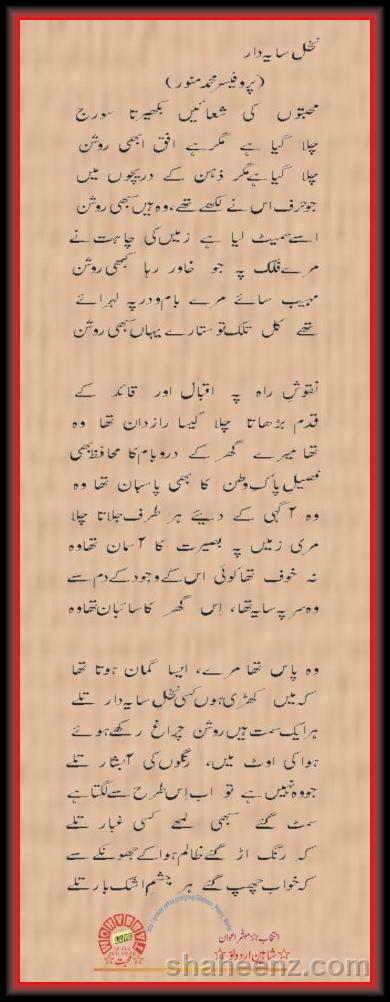 نخلِ سایہ دار
(پروفیسر محمد منور)
محبتوں کی شعائیں بکھیرتا سورج
چلا گیا ہے مگر ہے افق ابھی روشن
چلا گیا ہے مگر ذہن کے دریچوں میں
جو حرف اس نے لکھے تھے، وہ ہیں سبھی روشن
اسے سمیٹ لیا ہے زمیں کی چاہت نے
مرے فلک پہ جو خاور رہا کبھی روشن
مہیب سائے مرے بام و در پہ لہرائے
تھے کل تلک تو ستارے یہاں سبھی روشن
نقوشِ راہ پہ اقبال اور قائد کے
قدم بڑھاتا چلا کیسا رازدان تھا وہ
تھا میرے گھر کے در و بام کا محافظ بھی
فصیلِ پاک وطن کا بھی پاسبان تھا وہ
وہ آگہی کے دیئے ہر طرف جلاتا چلا
مری زمیں پہ بصیرت کا آسمان تھا وہ
نہ خوف تھا کوئی اس کے وجود کے دم سے
وہ سر پہ سایہ تھا، اِس گھر کا سائبان تھا وہ
وہ پاس تھا مرے، ایسا گمان ہوتا تھا
کہ میں کھڑی ہوں کسی نخلِ سایہ دار تلے
ہر ایک سمت ہیں روشن چراغ رکھے ہوئے
ہوا کی اوٹ میں، رنگوں کی آبشار تلے
جو وہ نہیں ہے تو اب اِس طرح سے لگتا ہے
سمٹ گئے سبھی لمحے کسی غبار تلے
کہ رنگ اڑ گئے ظالم ہوا کے جھونکے سے
کہ خواب چھپ گئے ہر چشمِ اشک بار تلے
LOVE
☆محبت☆
انتخاب☆مبشر اعوان
☆شاہین اردو لو☆
shaheenz.com